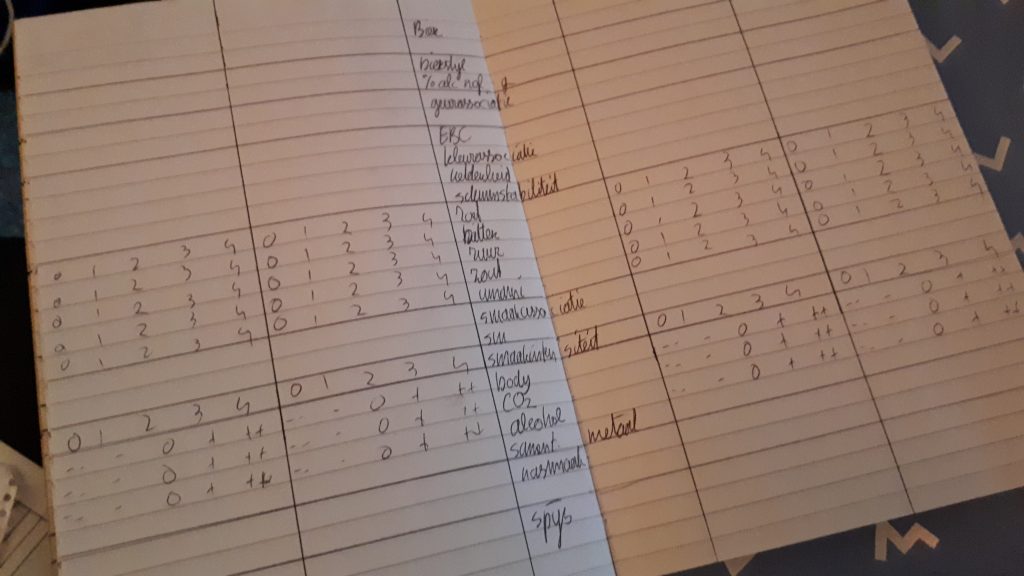 Bier
bierstijl
% alc
geurassociatie
EBC
kleurassociatie
helderheid
schuimstabiliteit
0 1 2 3 4 0 1 2 3 4 zoet 0 1 2 3 4 0 1 2 3 4
0 1 2 3 4 0 1 2 3 4 bitter 0 1 2 3 4 0 1 2 3 4
0 1 2 3 4 0 1 2 3 4 zuur 0 1 2 3 4 0 1 2 3 4
0 1 2 3 4 0 1 2 3 4 zout 0 1 2 3 4 0 1 2 3 4
0 1 2 3 4 0 1 2 3 4 umami 0 1 2 3 4 0 1 2 3 4
smaakassociatie
0 1 2 3 4 0 1 2 3 4 smaakintensiteit 0 1 2 3 4 0 1 2 3 4
-- - 0 + ++ -- - 0 + ++ body -- - 0 + ++ -- - 0 + ++
-- - 0 + ++ -- - 0 + ++ CO2 -- - 0 + ++ -- - 0 + ++
-- - 0 + ++ -- - 0 + ++ alcohol -- - 0 + ++ -- - 0 + ++
metaal
nasmaak
spijs